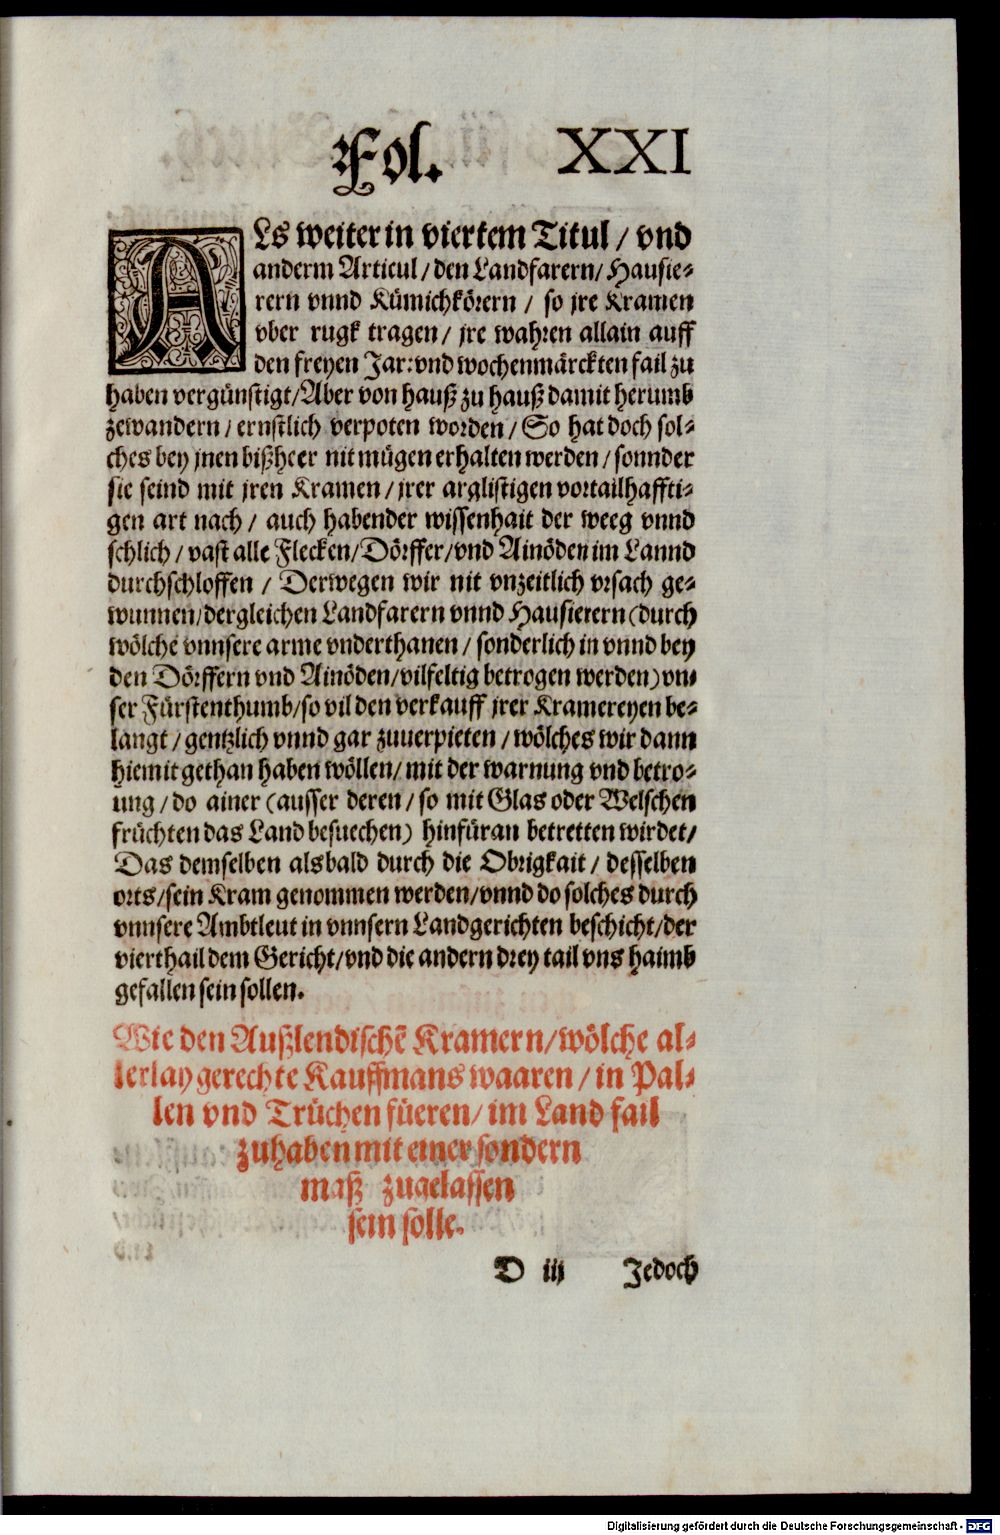 Fol. XXI
ALs weiter in viertem Titul / vnd
anderm Articul / den Landfarern / Hausie⸗
rern vnnd Kümichkörern / so jre Kramen
vber rugk tragen / jre wahren allain auff
den freyen Jar: vnd wochenmärckten fail zu
haben vergünstigt / Aber von hauß zu hauß damit herumb
zewandern / ernstlich verpoten worden / So hat doch sol⸗
ches bey jnen bißheer nit mügen erhalten werden / sonnder
sie seind mit jren Kramen / jrer arglistigen vortailhaffti⸗
gen art nach / auch habender wissenhait der weeg vnnd
schlich / vast alle Flecken / Dörffer / vnd Ainöden im Lannd
durchschloffen / Derwegen wir nit vnzeitlich vrsach ge⸗
wunnen / dergleichen Landfarern vnnd Hausierern (durch
wölche vnnsere arme vnderthanen / sonderlich in vnnd bey
den Dörffern vnd Ainöden / vilfeltig betrogen werden) vn⸗
ser Fürstenthumb / so vil den verkauff jrer Kramereyen be⸗
langt / gentzlich vnnd gar zuuerpieten / wölches wir dann
hiemit gethan haben wöllen / mit der warnung vnd betro⸗
ung / do ainer (ausser deren / so mit Glas oder Welschen
früchten das Land besuechen) hinfüran betretten wirdet /
Das demselben alsbald durch die Obrigkait / desselben
orts / sein Kram genommen werden / vnnd do solches durch
vnnsere Ambtleut in vnnsern Landgerichten beschicht / der
vierthail dem Gericht / vnd die andern drey tail vns haimb
gefallen sein sollen.
Wie den Außlendischẽ Kramern / wölche al⸗
lerlay gerechte Kauffmans waaren / in Pal⸗
len vnd Trüchen füeren / im Land fail
zuhaben mit einer sondern
maß zugelassen
sein solle.
D iij Jedoch
Digitalisierung gefördert durch die Deutsche Forschungsgemeinschaft - DFG